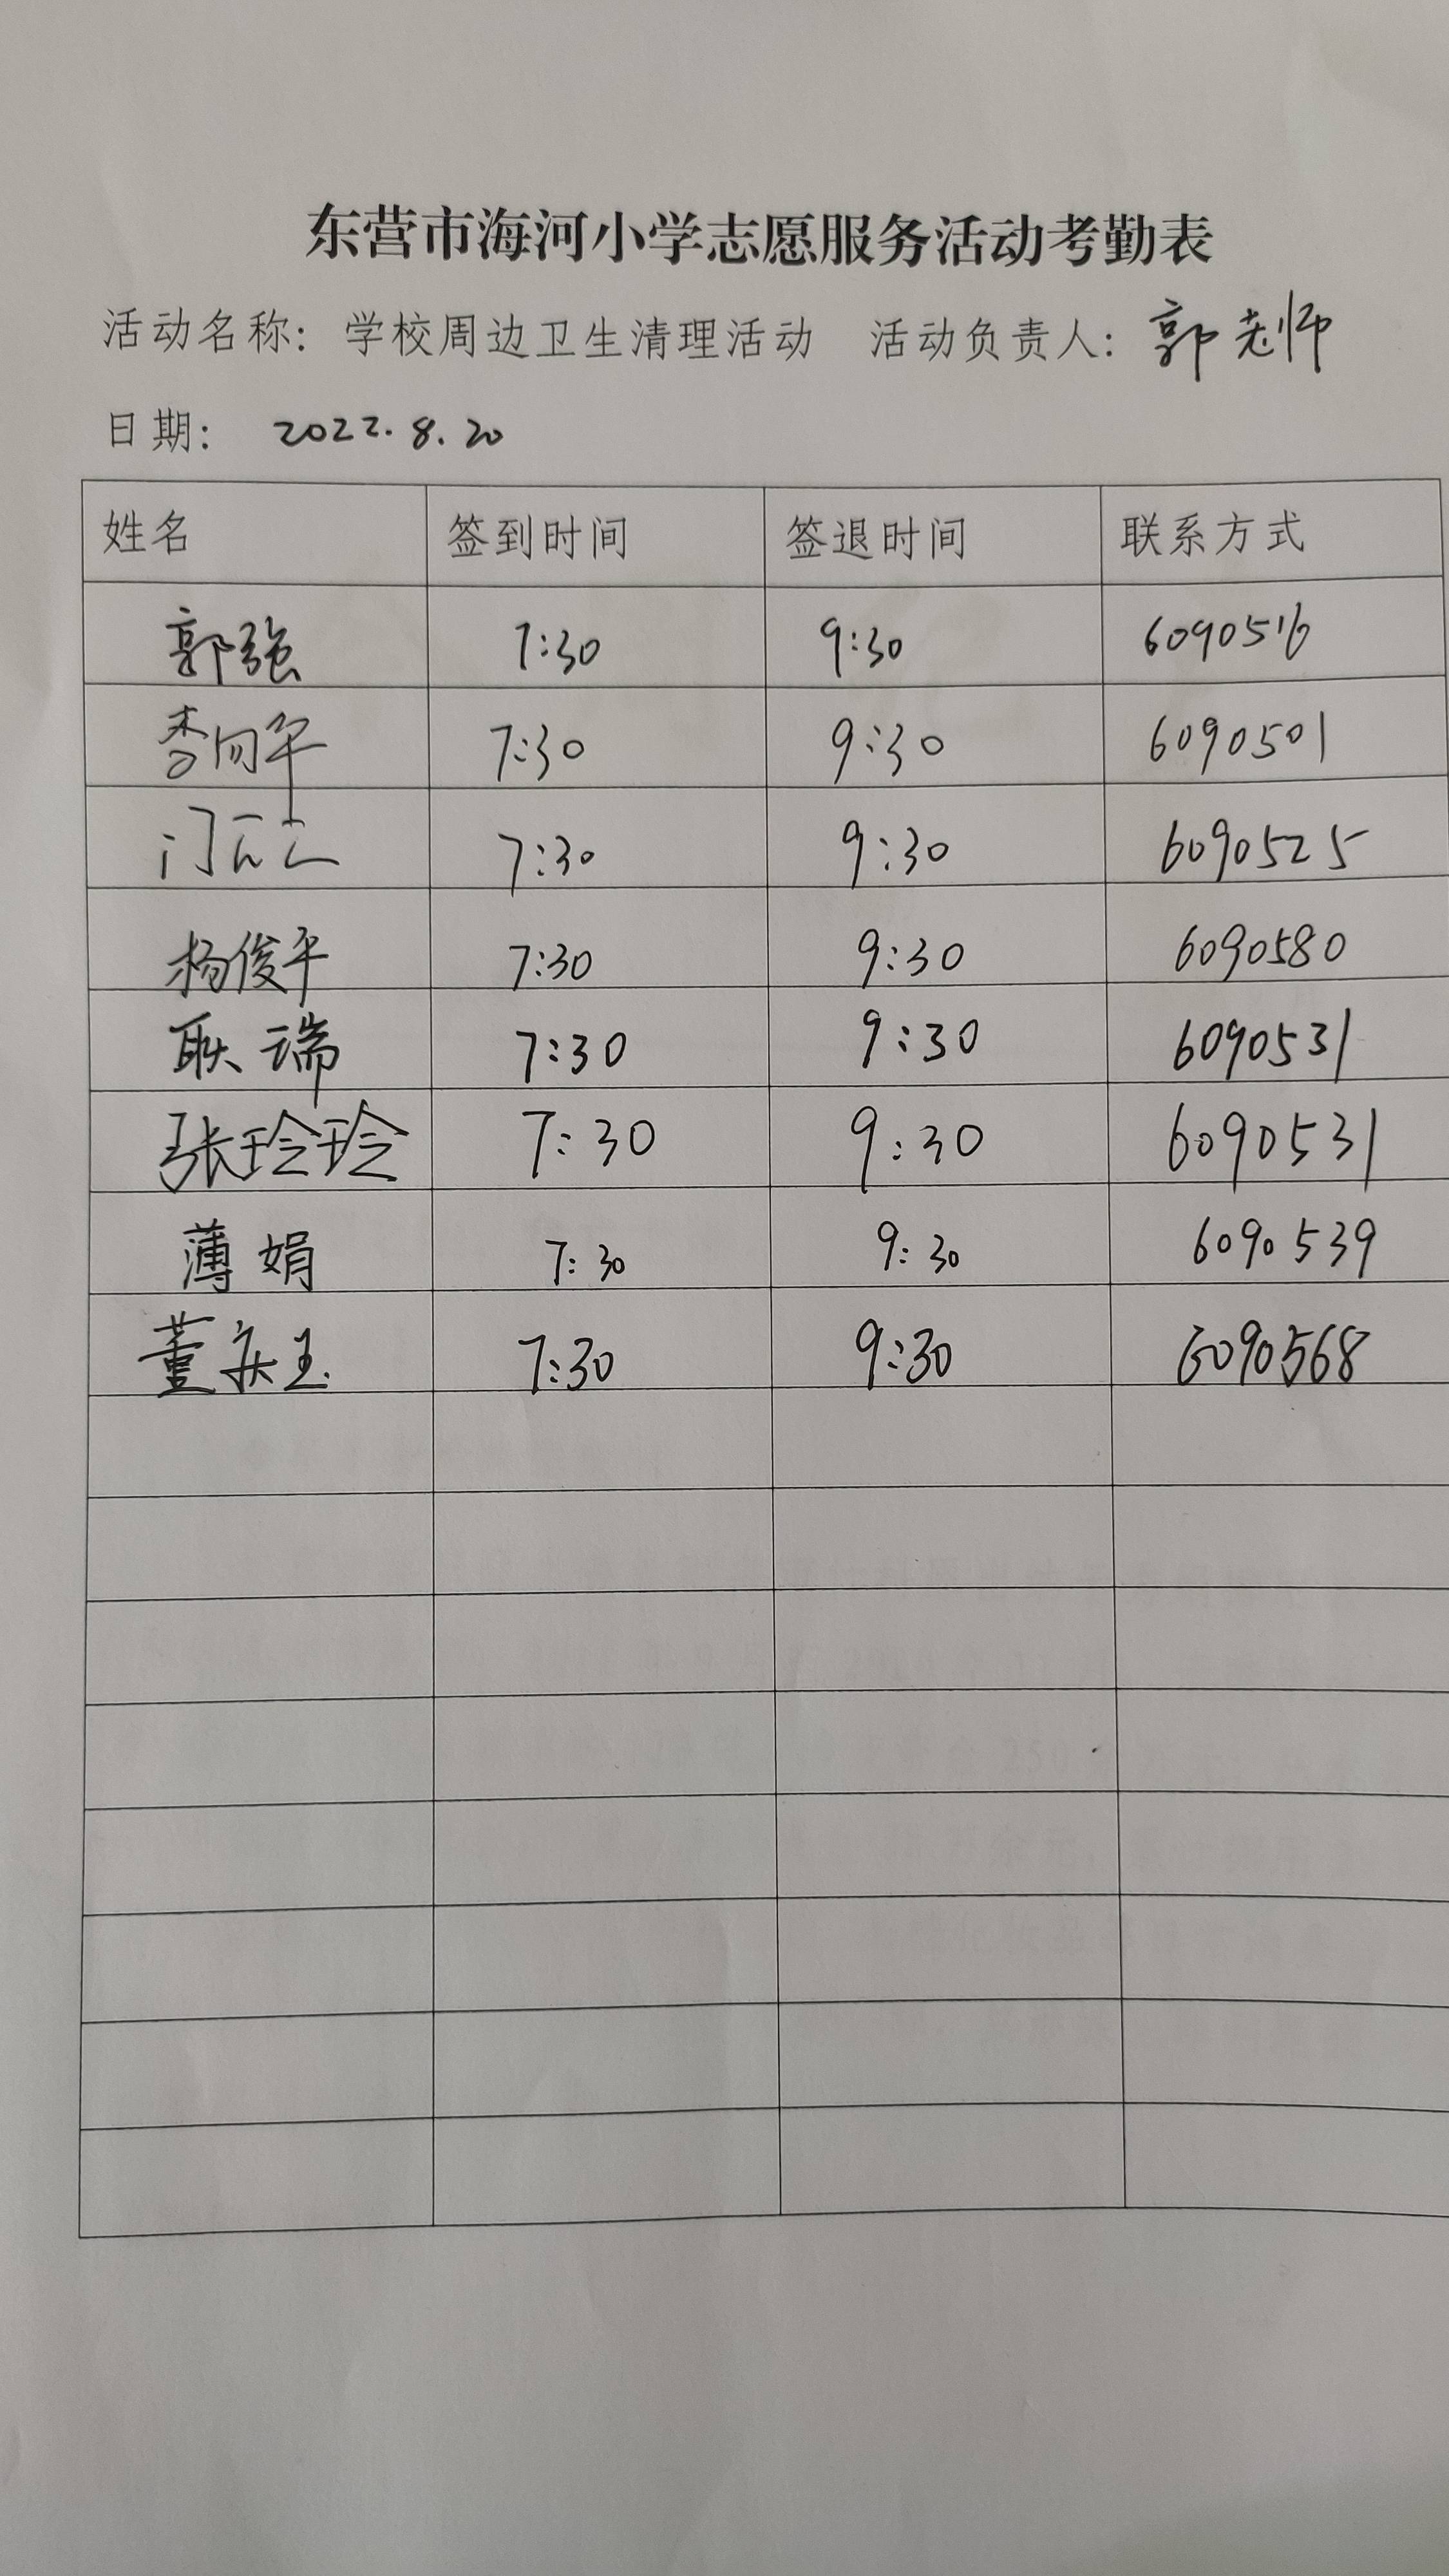 东营市海河小学志愿服务活动考勤表
活动名称：学校周边卫生清理活动 活动负责人：郭老师
日期： 2022.8.20
姓名 签到时间 签退时间 联系方式
郭强 7:30 9:30 6090516
李向军 7:30 9:30 6090501
7:30 9:30 6090525
杨俊平 7:30 9:30 6090580
耿瑞 7:30 9:30 6090531
张玲玲 7:30 9:30 6090531
薄娟 7:30 9:30 6090539
董庆玉 7:30 9:30 6090568